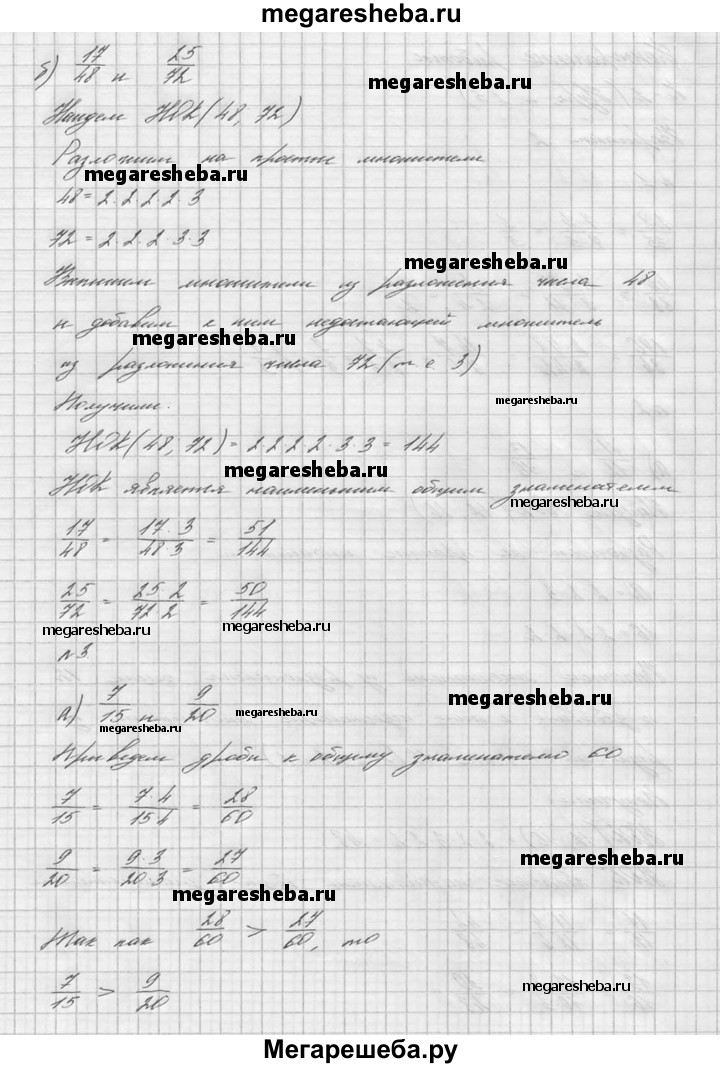 megaresheba.ru
б) 17/48 и 25/72
megaresheba.ru
Найдем НОК(48, 72)
Разложим на простые множители
megaresheba.ru
48 = 2·2·2·2·3
72 = 2·2·2·3·3
megaresheba.ru
Выпишем множители из разложения числа 48
и добавим к ним недостающей множитель
megaresheba.ru
из разложения числа 72 (т е 3)
Получили:
megaresheba.ru
НОК(48, 72) = 2·2·2·2·3·3 = 144
megaresheba.ru
НОК является наименьшим общим знаменателем
megaresheba.ru
17/48 = 17·3/48·3 = 51/144
25/72 = 25·2/72·2 = 50/144
megaresheba.ru megaresheba.ru
№3
а) 7/15 и 9/20
megaresheba.ru
megaresheba.ru megaresheba.ru
Приведем дроби к общему знаменателю 60
7/15 = 7·4/15·4 = 28/60
9/20 = 9·3/20·3 = 27/60
megaresheba.ru
megaresheba.ru
Так как 28/60 > 27/60, то
7/15 > 9/20
megaresheba.ru
Мегарешеба.ру